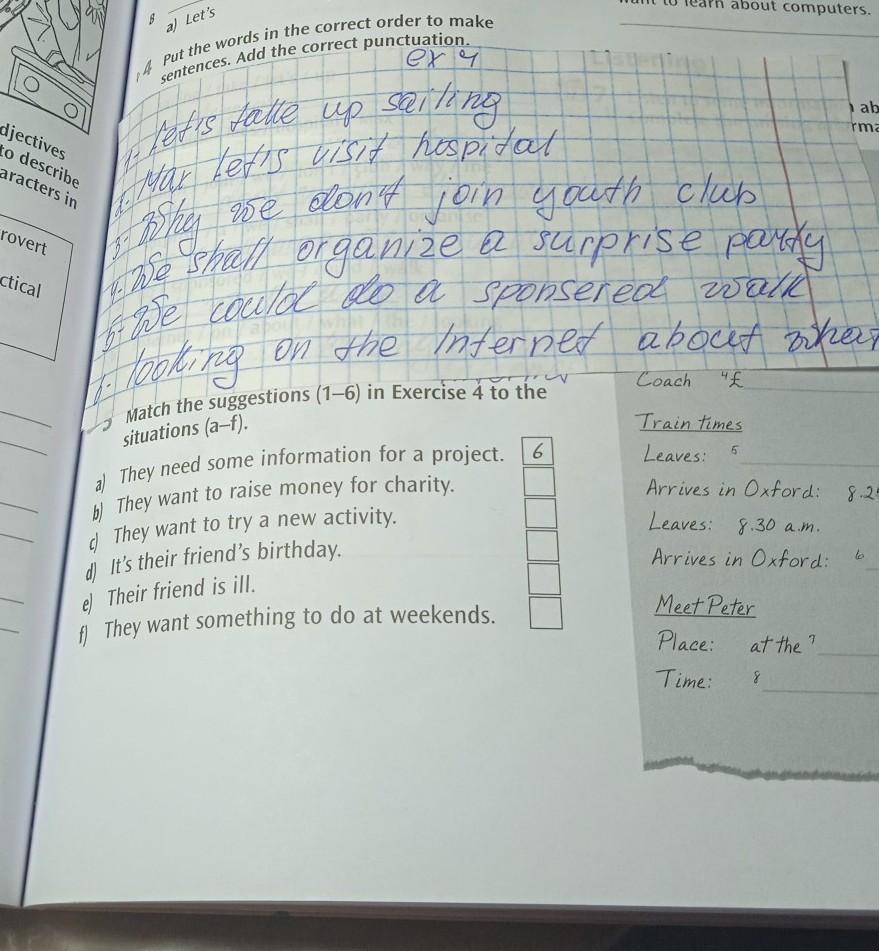 8
a) Let's
want to learn about computers.
4 Put the words in the correct order to make
sentences. Add the correct punctuation.
ex 4
1. Let's take up sailing
2. May let's visit hospital
3. Why we don't join youth club
4. We shall organize a surprise party
5. We could do a sponsered walk
6. looking on the Internet about what
djectives
to describe
aracters in
rovert
ctical
ab
rma
Match the suggestions (1–6) in Exercise 4 to the
situations (a–f).
a) They need some information for a project. 6
b) They want to raise money for charity.
c) They want to try a new activity.
d) It's their friend's birthday.
e) Their friend is ill.
f) They want something to do at weekends.
Coach 4£
Train times
Leaves: 5
Arrives in Oxford: 8.2
Leaves: 8.30 a.m.
Arrives in Oxford: 6
Meet Peter
Place: at the 7
Time: 8